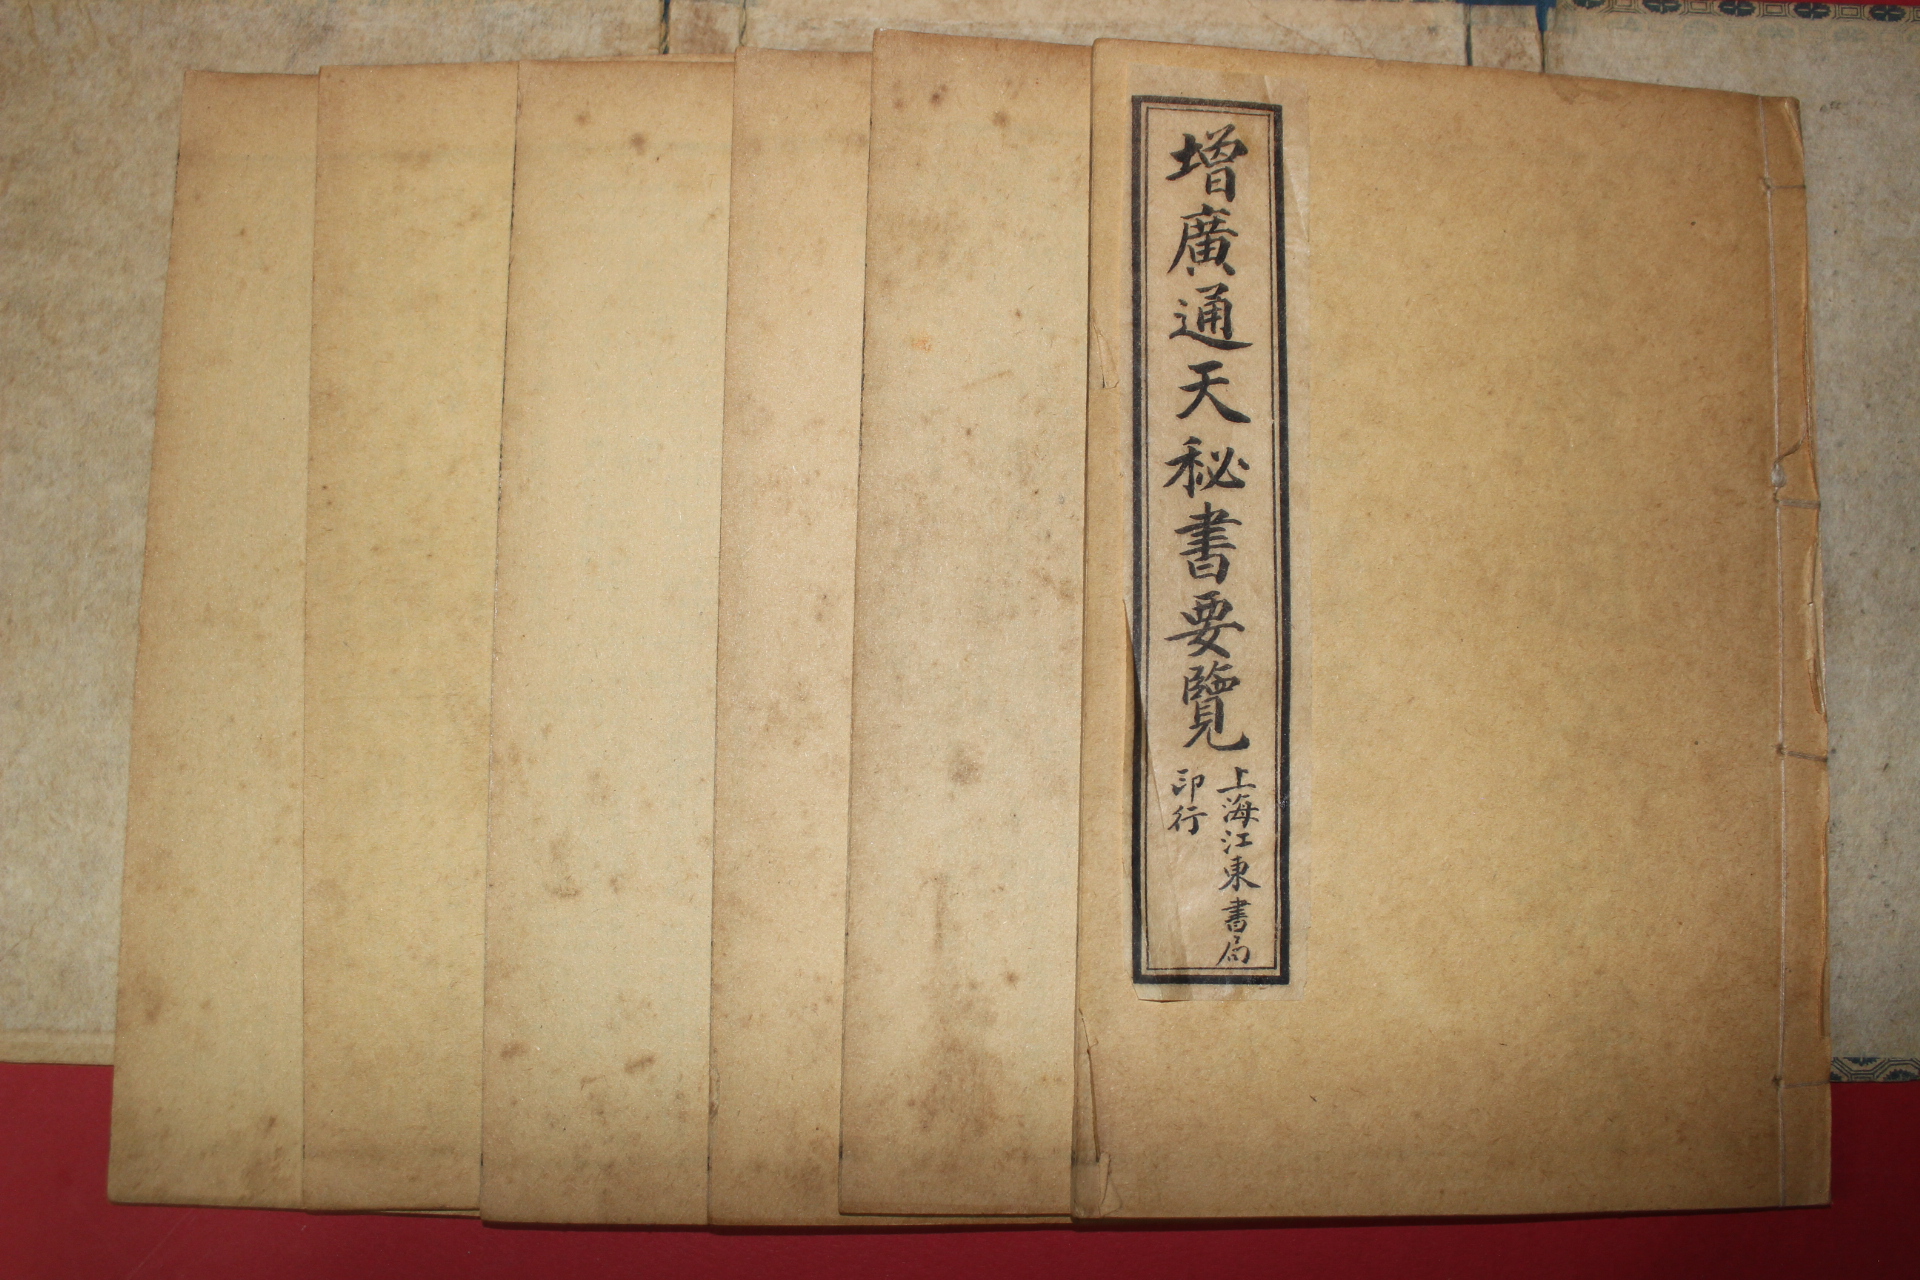 增廣通天秘書要覽
上海江東書局
印行